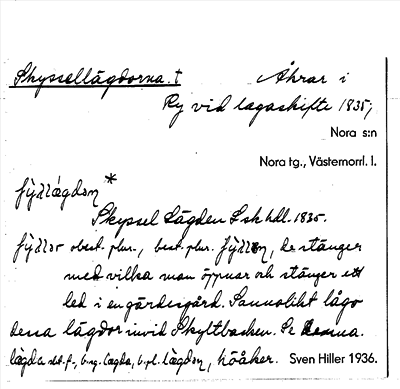 Skyssellägdorna. † Åkrar i
Ry vid lagaskifte 1835;
Nora s:n
Nora tg., Västernorrl. l.
*
Skyssel Lägden Lsk hdl. 1835.
obest. plur., best. plur. de stänger
med vilka man öppnar och stänger ett
led i en gärdesgård. Sannolikt lågo
dessa lägdor invid Skyltbacken. Se denna.
lägda höåker. Sven Hiller 1936.